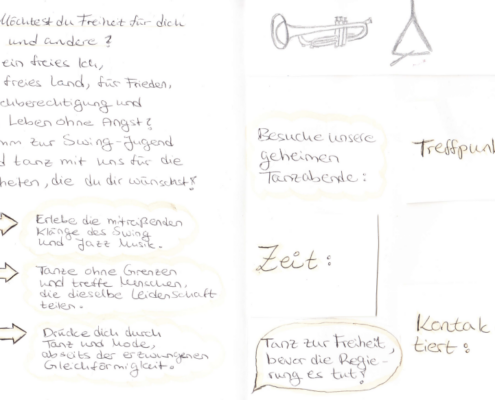 Möchtest du Freiheit für dich
und andere?
ein freies Ich,
freies Land, für Frieden,
chberechtigung und
Leben ohne Angst?
mm zur Swing-Jugend
d tanz mit uns für die
heiten, die du dir wünschst!
Erlebe die mitreißenden
Klänge des Swing
und Jazz Musik.
Tanze ohne Grenzen
und treffe Menschen,
die dieselbe Leidenschaft
teilen.
Drücke dich durch
Tanz und Mode,
abseits der erzwungenen
Gleichförmigkeit.
Besuche unsere
geheimen
Tanzabende:
Zeit:
Tanz zur Freiheit,
bevor die Regie-
rung es tut!
Treffpunk
Kontak
tiert: